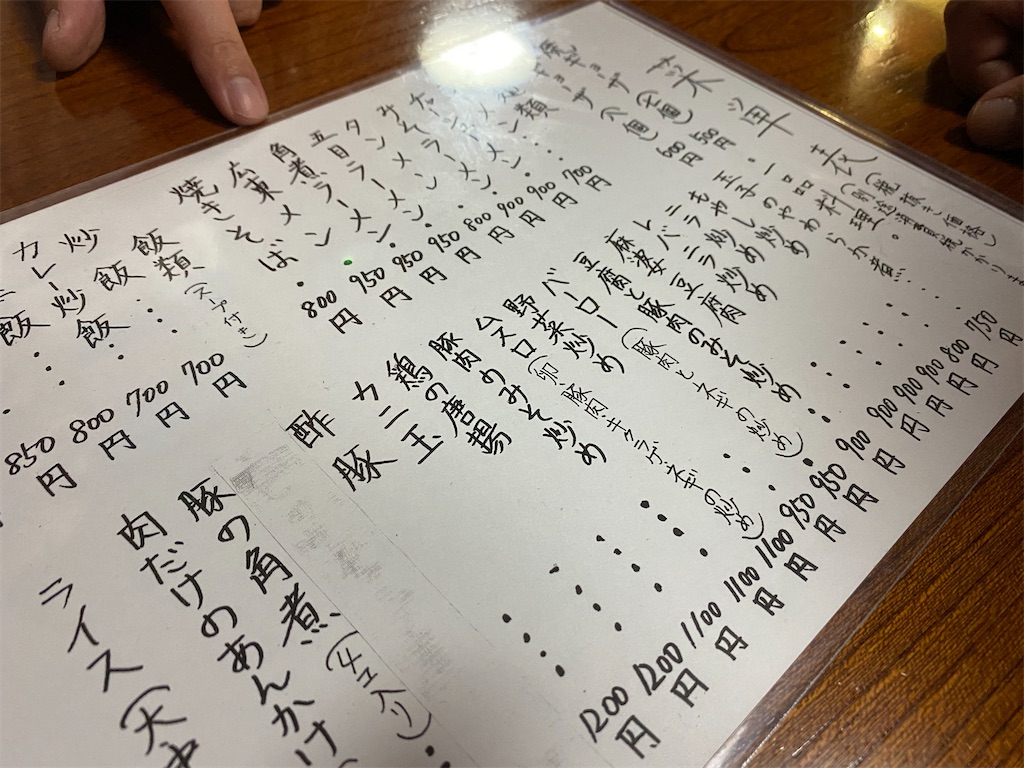 菜単表(税抜き価格)
(別途消費税がかかります
ギョーザ(五個)550円
ギョーザ(八個)600円
・一品料理。
玉子のやわらか煮・・・750円
もやし炒め・・・800円
ニラ炒め・・・900円
レバニラ炒め・・・900円
麻婆豆腐・・・900円
豆腐と豚肉のみそ炒め・・900円
バーロー(豚肉とネギの炒め)・950円
野菜炒め・・・950円
ムスロ(卵豚肉キクラゲネギの炒め)1100円
豚肉のみそ炒め・・・1100円
鶏の唐揚・・・1100円
カニ玉・・・1200円
酢豚・・・1200円
豚の角煮(チュ入り)・
肉だけのあんかけ
ライス(大中
類
メン・・・700円
みそラーメン・・900円
タンメン・・・800円
五目ラーメン・950円
角煮ラーメン・950円
広東メン・950円
焼きそば・800円
飯類(スープ付き)
炒飯・・・700円
炒飯・・・700円
カレー飯・・・800円
850円